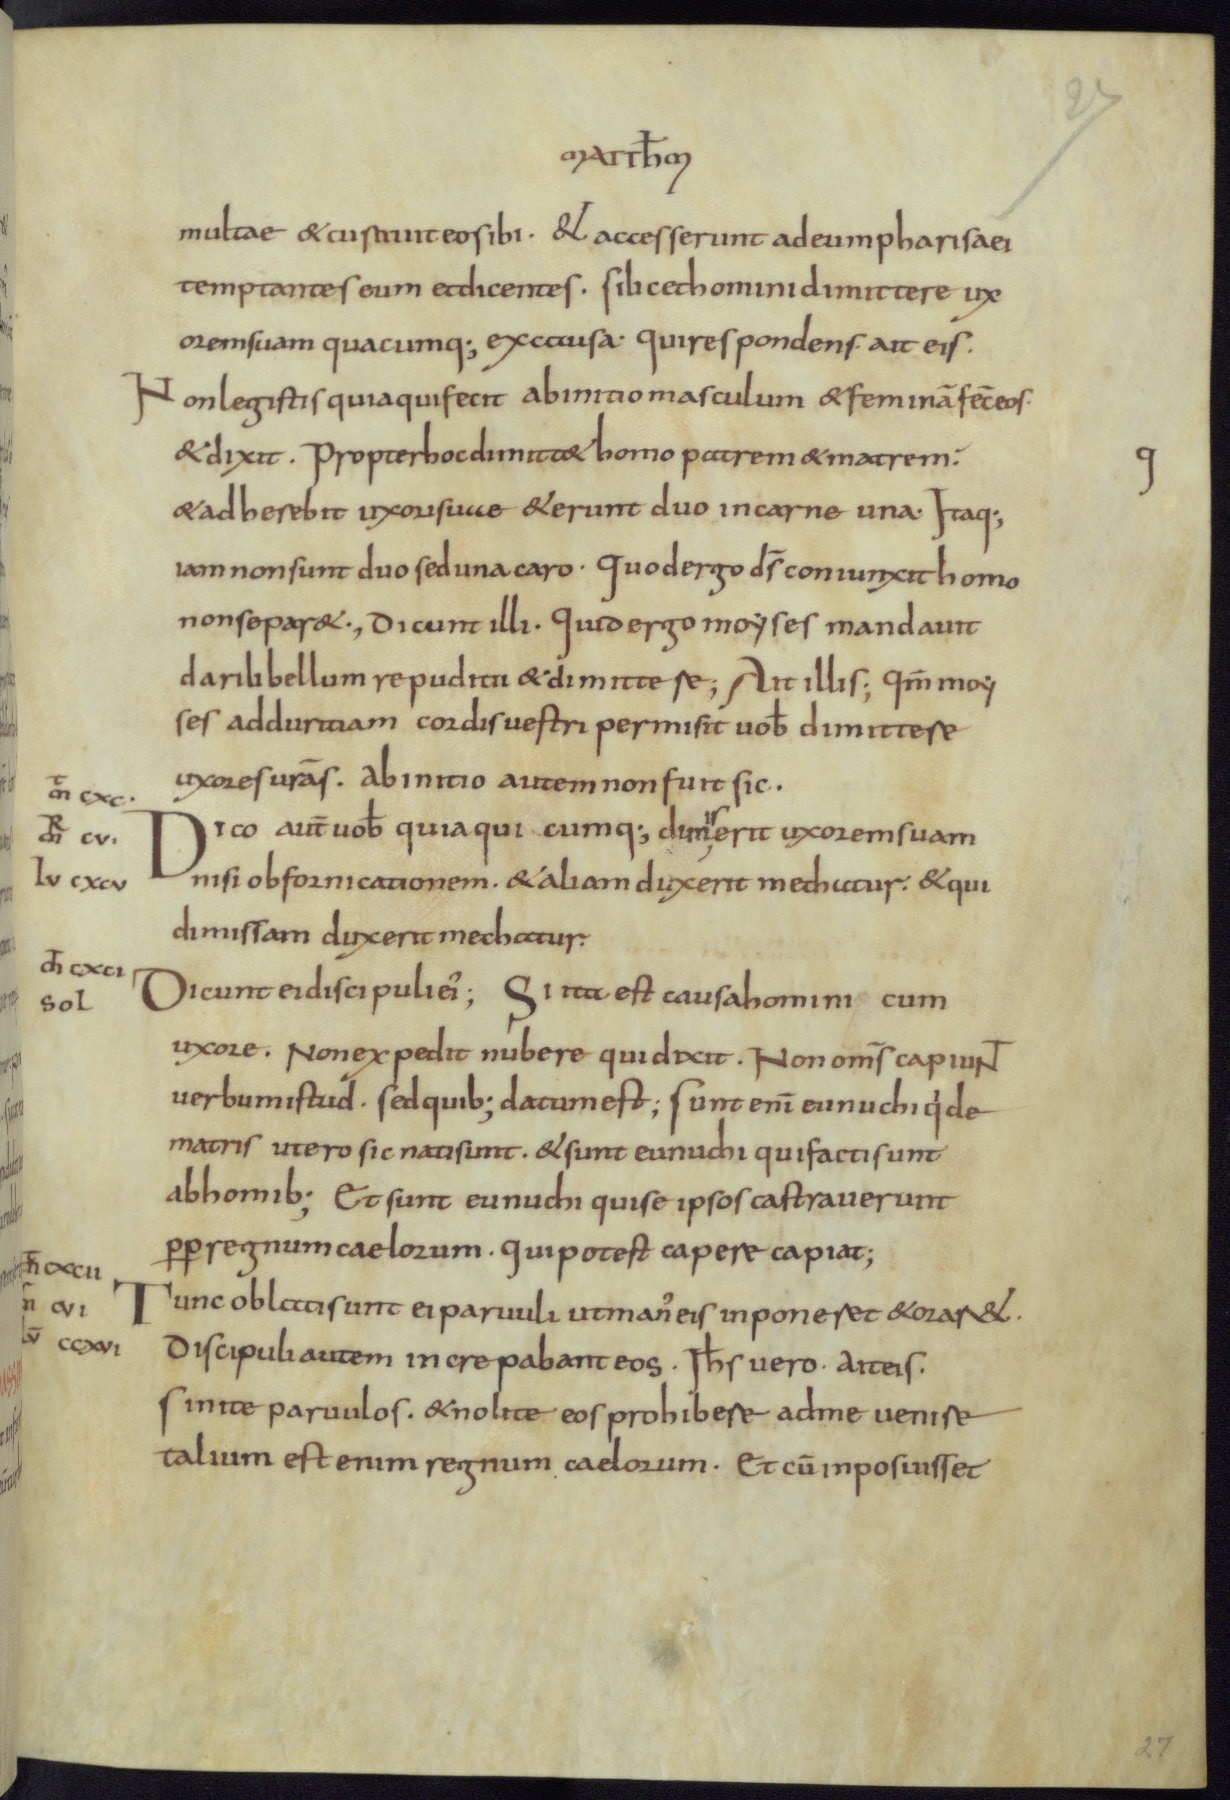 27
MATTH̄M
multae & curauit eos ibi. & accesserunt ad eum pharisaei
temptantes eum et dicentes. si licet homini dimittere ux
orem suam quacumq; ex causa. qui respondens ait eis.
Non legistis quia qui fecit ab initio masculum & feminā fec̄ eos.
& dixit. Propter hoc dimitt& homo patrem & matrem.
& adherebit uxori suae & erunt duo in carne una. Itaq;
iam non sunt duo sed una caro. Quod ergo ds̄ coniunxit homo
non separ&., Dicunt illi. Quid ergo moyses mandauit
dari libellum repudii & dimittere; Ait illis; qm̄ moy
ses ad duritiam cordis uestri permisit uob̄ dimittere
uxores urās. Ab initio autem non fuit sic.
m̄t cxc.
m̄r cv.
lu cxcv
Dico aut̄ uob̄ quia qui cumq; dimiserit uxorem suam
nisi ob fornicationem. & aliam duxerit mechatur. & qui
dimissam duxerit mechatur.
m̄t cxci
sol
Dicunt ei discipuli ei'; Si ita est causa homini cum
uxore. Non expedit nubere qui dixit. Non om̄s capiuNT
uerbum istud. sed quib; datum est; sunt eni̅ eunuchi q̇ de
matris utero sic nati sunt. & sunt eunuchi qui facti sunt
ab homib; Et sunt eunuchi qui se ipsos castrauerunt
pp regnum caelorum. Qui potest capere capiat;
m̄t cxcii
m̄ cvi
lū ccxvi
Tunc oblati sunt ei paruuli ut man' eis inponeret & orar&.
Discipuli autem increpabant eos. Ih̄s uero. Ait eis.
Sinite paruulos. & nolite eos prohibere ad me uenire
talium est enim regnum caelorum. Et cū inposuisset
9
27